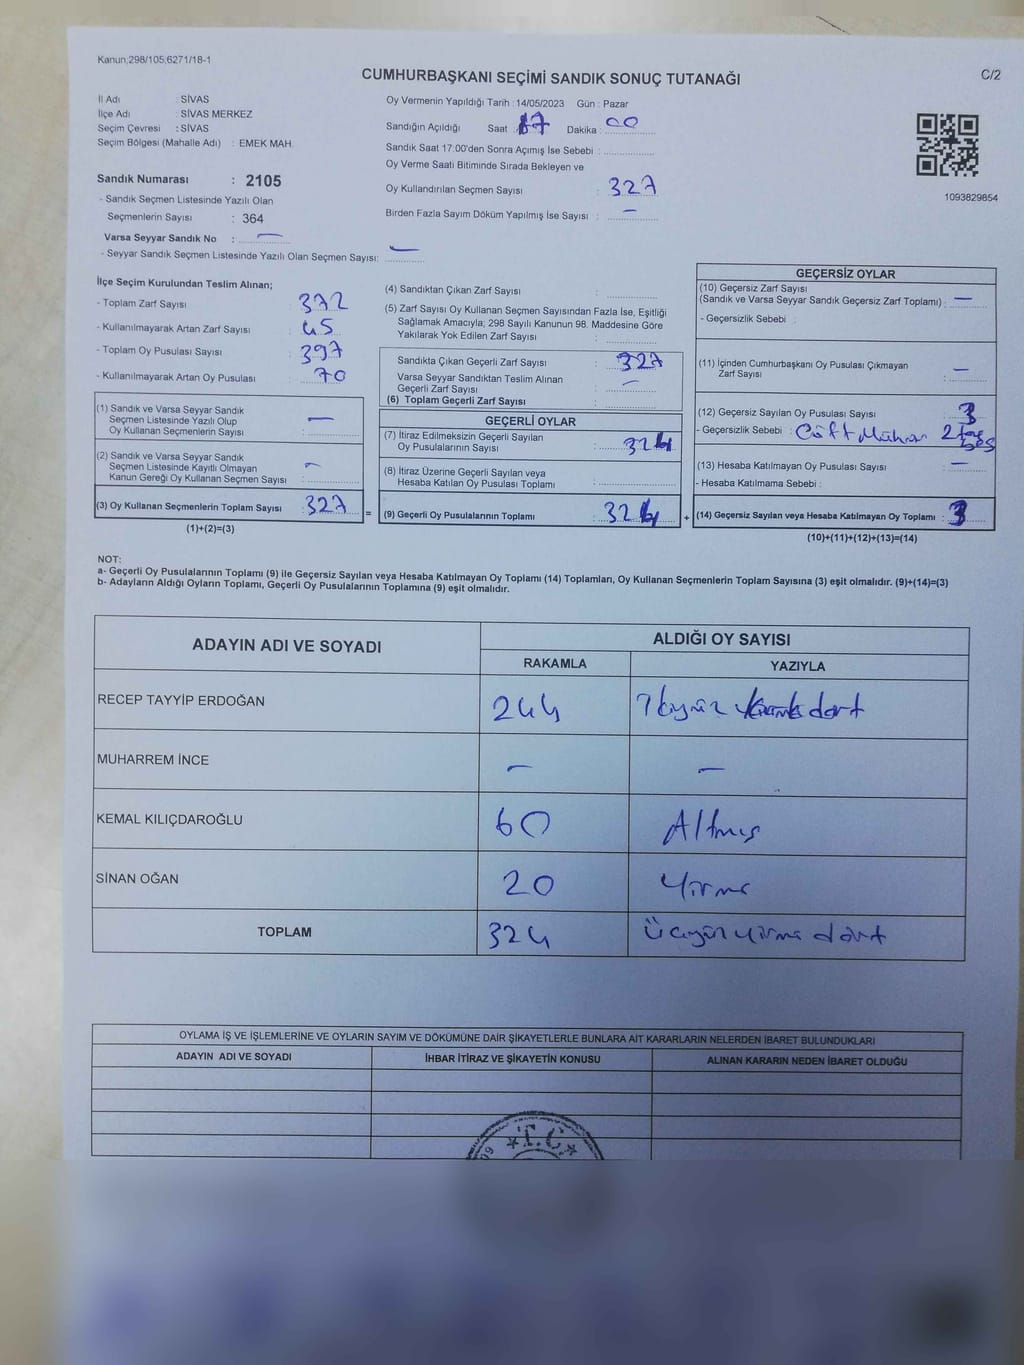 Kanun;298/105;6271/18-1
CUMHURBAŞKANI SEÇİMİ SANDIK SONUÇ TUTANAĞI
C/2
İl Adı : SİVAS
İlçe Adı : SİVAS MERKEZ
Seçim Çevresi : SİVAS
Seçim Bölgesi (Mahalle Adı) : EMEK MAH.
Sandık Numarası : 2105
- Sandık Seçmen Listesinde Yazılı Olan
Seçmenlerin Sayısı : 364
Varsa Seyyar Sandık No : —
- Seyyar Sandık Seçmen Listesinde Yazılı Olan Seçmen Sayısı: —
Oy Vermenin Yapıldığı Tarih : 14/05/2023 Gün : Pazar
Sandığın Açıldığı Saat : 17 Dakika : 00
Sandık Saat 17:00'den Sonra Açımış İse Sebebi :
Oy Verme Saati Bitiminde Sırada Bekleyen ve
Oy Kullandırılan Seçmen Sayısı : 327
Birden Fazla Sayım Döküm Yapılmış İse Sayısı : —
1093829854
İlçe Seçim Kurulundan Teslim Alınan;
- Toplam Zarf Sayısı : 372
- Kullanılmayarak Artan Zarf Sayısı : 45
- Toplam Oy Pusulası Sayısı : 397
- Kullanılmayarak Artan Oy Pusulası : 70
(1) Sandık ve Varsa Seyyar Sandık
Seçmen Listesinde Yazılı Olup
Oy Kullanan Seçmenlerin Sayısı : —
(2) Sandık ve Varsa Seyyar Sandık
Seçmen Listesinde Kayıtlı Olmayan
Kanun Gereği Oy Kullanan Seçmen Sayısı : —
(3) Oy Kullanan Seçmenlerin Toplam Sayısı : 327
(1)+(2)=(3)
=
(4) Sandıktan Çıkan Zarf Sayısı :
(5) Zarf Sayısı Oy Kullanan Seçmen Sayısından Fazla İse, Eşitliği
Sağlamak Amacıyla; 298 Sayılı Kanunun 98. Maddesine Göre
Yakılarak Yok Edilen Zarf Sayısı :
Sandıkta Çıkan Geçerli Zarf Sayısı : 327
Varsa Seyyar Sandıktan Teslim Alınan
Geçerli Zarf Sayısı : —
(6) Toplam Geçerli Zarf Sayısı :
GEÇERLİ OYLAR
(7) İtiraz Edilmeksizin Geçerli Sayılan
Oy Pusulalarının Sayısı : 324
(8) İtiraz Üzerine Geçerli Sayılan veya
Hesaba Katılan Oy Pusulası Toplamı :
(9) Geçerli Oy Pusulalarının Toplamı : 324
+
GEÇERSİZ OYLAR
(10) Geçersiz Zarf Sayısı
(Sandık ve Varsa Seyyar Sandık Geçersiz Zarf Toplamı) : —
- Geçersizlik Sebebi :
(11) İçinden Cumhurbaşkanı Oy Pusulası Çıkmayan
Zarf Sayısı : —
(12) Geçersiz Sayılan Oy Pusulası Sayısı : 3
- Geçersizlik Sebebi : Çift Mühür 2
(13) Hesaba Katılmayan Oy Pusulası Sayısı : —
- Hesaba Katılmama Sebebi :
(14) Geçersiz Sayılan veya Hesaba Katılmayan Oy Toplamı : 3
(10)+(11)+(12)+(13)=(14)
NOT:
a- Geçerli Oy Pusulalarının Toplamı (9) ile Geçersiz Sayılan veya Hesaba Katılmayan Oy Toplamı (14) Toplamları, Oy Kullanan Seçmenlerin Toplam Sayısına (3) eşit olmalıdır. (9)+(14)=(3)
b- Adayların Aldığı Oyların Toplamı, Geçerli Oy Pusulalarının Toplamına (9) eşit olmalıdır.
ADAYIN ADI VE SOYADI
ALDIĞI OY SAYISI
RAKAMLA YAZIYLA
RECEP TAYYİP ERDOĞAN 244 İkiyüz kırk dört
MUHARREM İNCE — —
KEMAL KILIÇDAROĞLU 60 Altmış
SİNAN OĞAN 20 Yirmi
TOPLAM 324 Üçyüz yirmi dört
OYLAMA İŞ VE İŞLEMLERİNE VE OYLARIN SAYIM VE DÖKÜMÜNE DAİR ŞİKAYETLERLE BUNLARA AİT KARARLARIN NELERDEN İBARET BULUNDUKLARI
ADAYIN ADI VE SOYADI İHBAR İTİRAZ VE ŞİKAYETİN KONUSU ALINAN KARARIN NEDEN İBARET OLDUĞU
T.C.